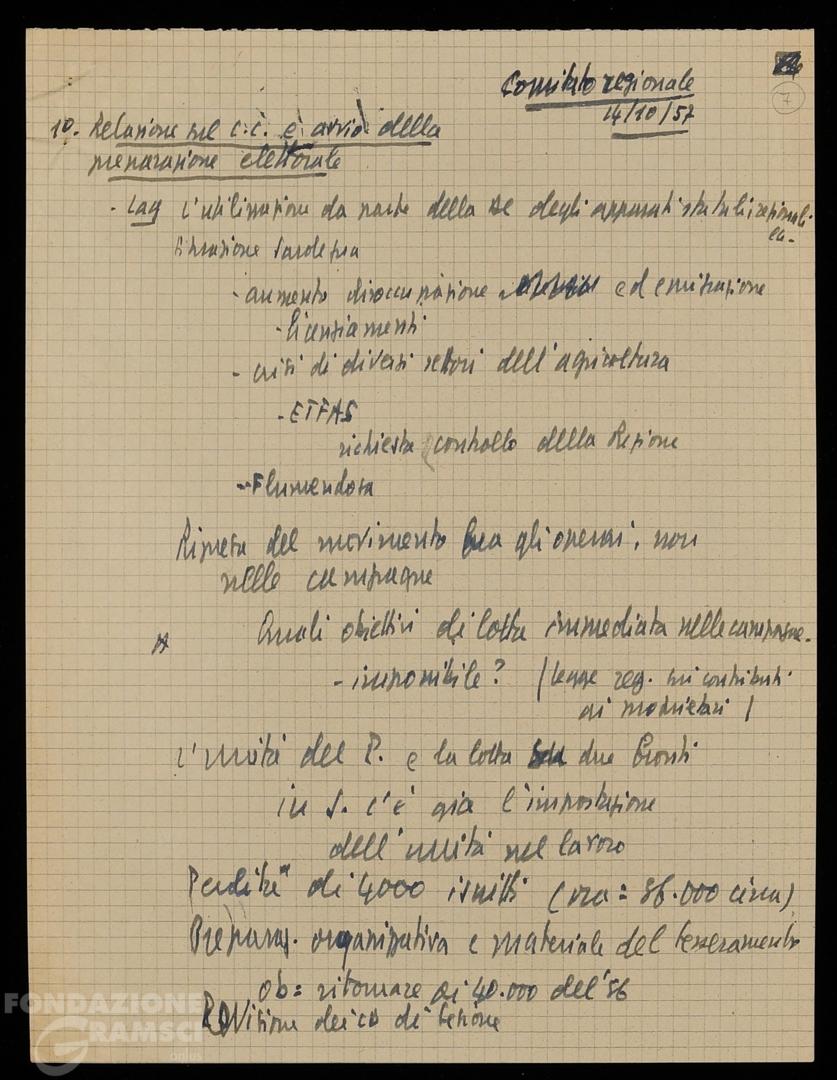 7
Comitato regionale
14/10/57
1º- Relazione sul C.C. e avvio della
preparazione elettorale
- Lay L'utilizzazione da parte della DC degli apparati statali, regionali
ecc.
Situazione Sardegna
- aumento disoccupazione ed emigrazione
- licenziamenti
- crisi di diversi settori dell'agricoltura
- ETFAS
richiesta controllo della Regione
- Flumendosa
Ripresa del movimento tra gli operai, non
nelle campagne
Quali obiettivi di lotta immediata nelle campagne.
- imponibile? (legge reg. sui contributi
ai proprietari)
L'unità del P. e la lotta su due fronti
in S. c'è già l'impostazione
dell'unità nel lavoro
Perdita di 4000 iscritti (ora = 36.000 circa)
Preparaz. organizzativa e materiale del tesseramento
ob = ritornare ai 40.000 del '56
Revisione dei CD di sezione
FONDAZIONE
GRAMSCI
onlus